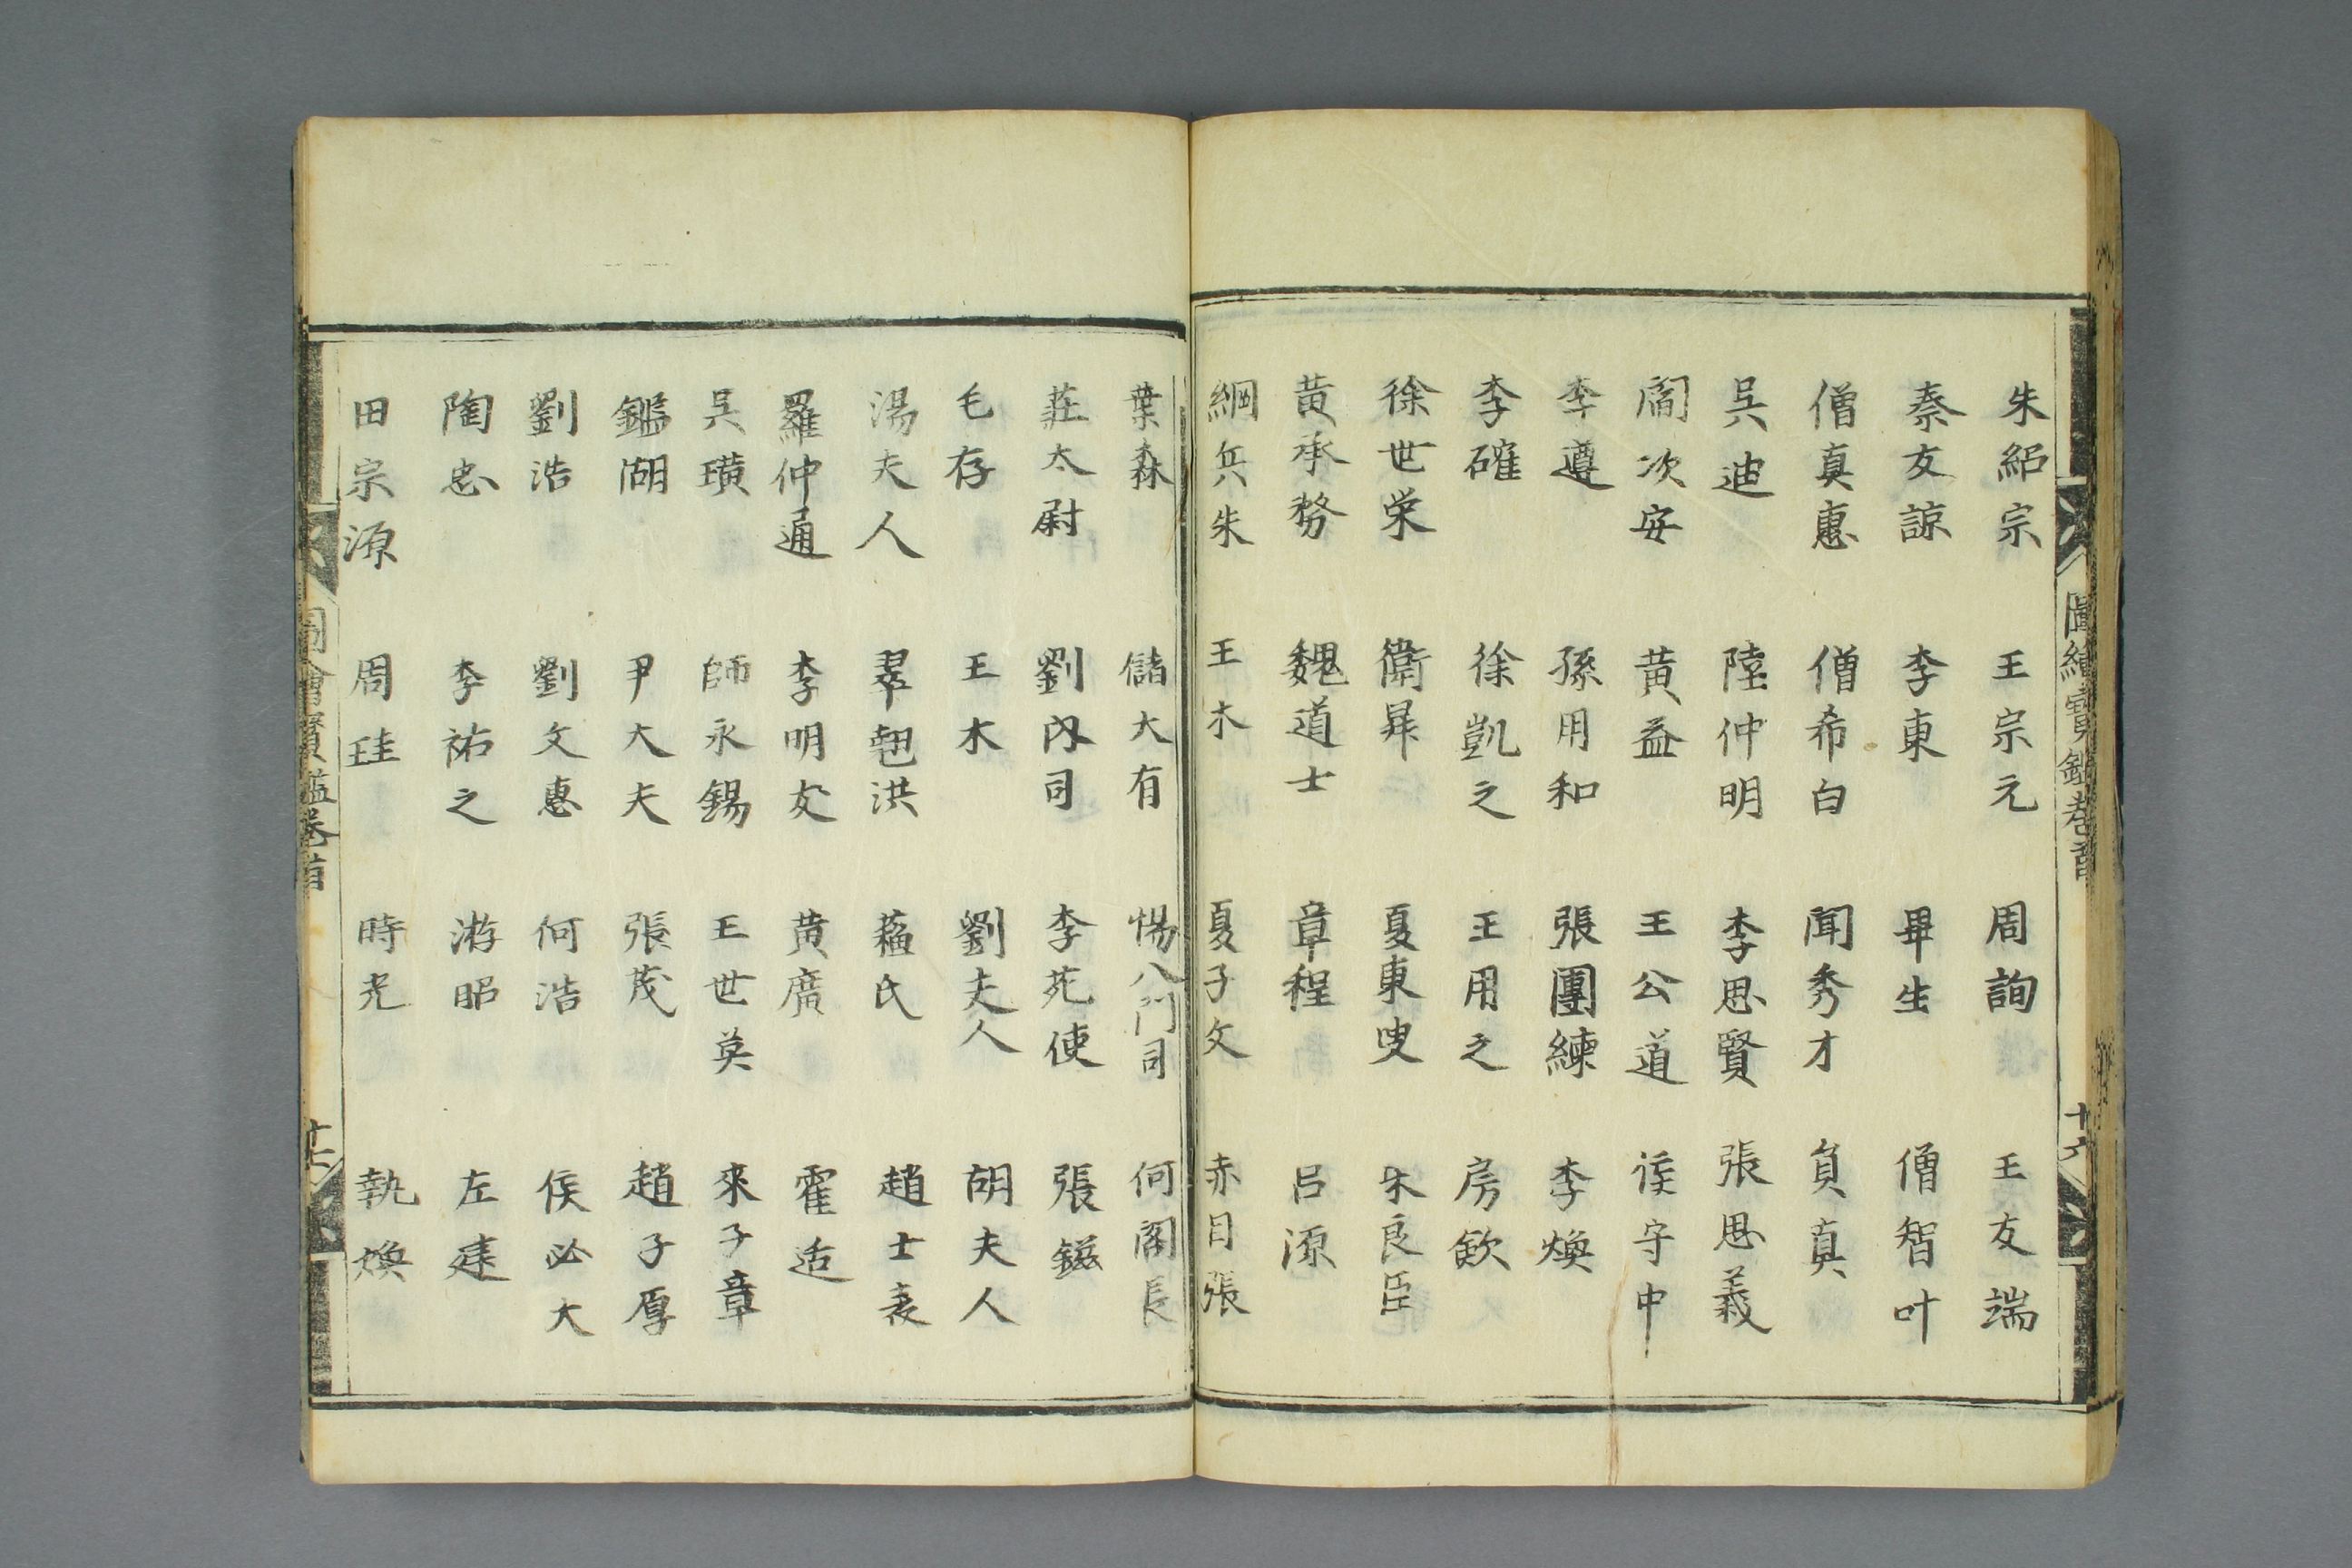 圖繪寶鑑卷首
十六
朱紹宗 王宗元 周詢 王友端
秦友諒 李東 畢生 僧智叶
僧真惠 僧希白 聞秀才 負真
吳迪 陸仲明 李思賢 張思義
閻次安 黄益 王公道 侯守中
李遵 孫用和 張團練 李煥
李確 徐凱之 王用之 房欽
徐世栄 衛昇 夏東叟 朱良臣
黄承務 魏道士 章程 呂源
綱兵朱 王木 夏子文 赤目張
葉森 儲大有 惕八門司 何閣長
莊太尉 劉內司 李苑使 張鎡
毛存 王木 劉夫人 胡夫人
湯夫人 翠翹洪 蘊氏 趙士表
羅仲通 李明友 黄廣 霍适
吳璜 師永錫 王世英 來子章
鑑湖 尹大夫 張茂 趙子厚
劉浩 劉文惠 何浩 侯必大
陶忠 李祐之 游昭 左建
田宗源 周珪 時光 執煥
圖會寶鑑卷首
十七